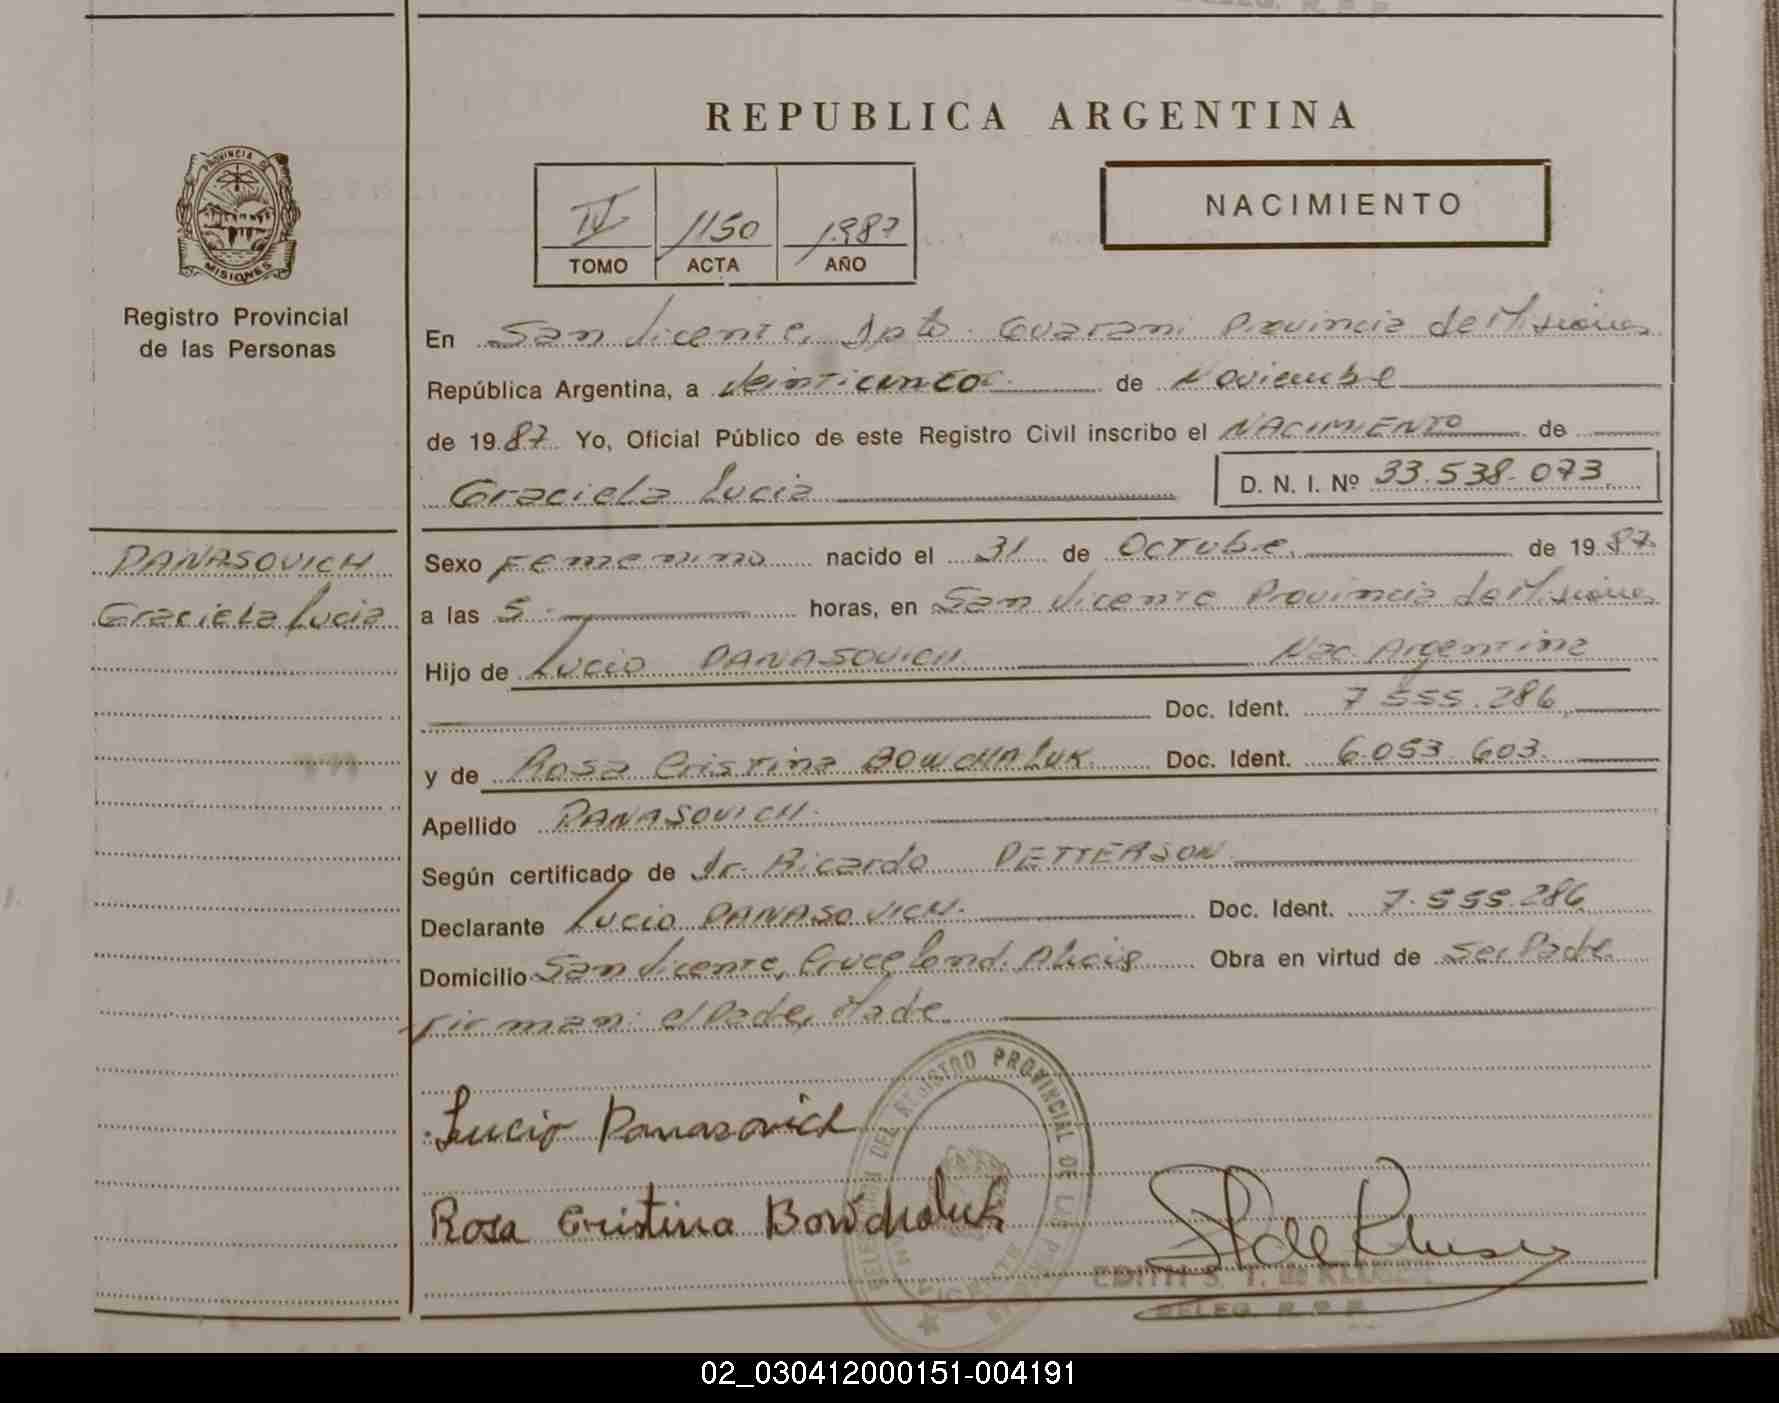 REPUBLICA ARGENTINA
PROVINCIA DE
MISIONES
Registro Provincial
de las Personas
IV 1150 1987
TOMO ACTA AÑO
NACIMIENTO
En San Vicente, Dpto. Guarani Provincia de Misiones
República Argentina, a Veinticinco de Noviembre
de 1987 Yo, Oficial Público de este Registro Civil inscribo el NACIMIENTO de
Graciela Lucia D. N. I. Nº 33.538.073
PANASOVICH
Graciela Lucia
Sexo Femenino nacido el 31 de Octubre de 1987
a las 5 horas, en San Vicente Provincia de Misiones
Hijo de Lucio PANASOVICH Nac. Argentina
Doc. Ident. 7.555.286
y de Rosa Cristina BOWCHALUK Doc. Ident. 6.053.603
Apellido PANASOVICH
Según certificado de Dr. Ricardo PETTERSON
Declarante Lucio PANASOVICH Doc. Ident. 7.555.286
Domicilio San Vicente, Cruce Cond. Alicia Obra en virtud de Ser Padre
Firman: el Padre, Madre
Lucio Panasovich
Rosa Cristina Bowchaluk
DEL REGISTRO PROVINCIAL DE LAS
EDITH S. T. de
DELEG. R. P. P.
02_030412000151-004191